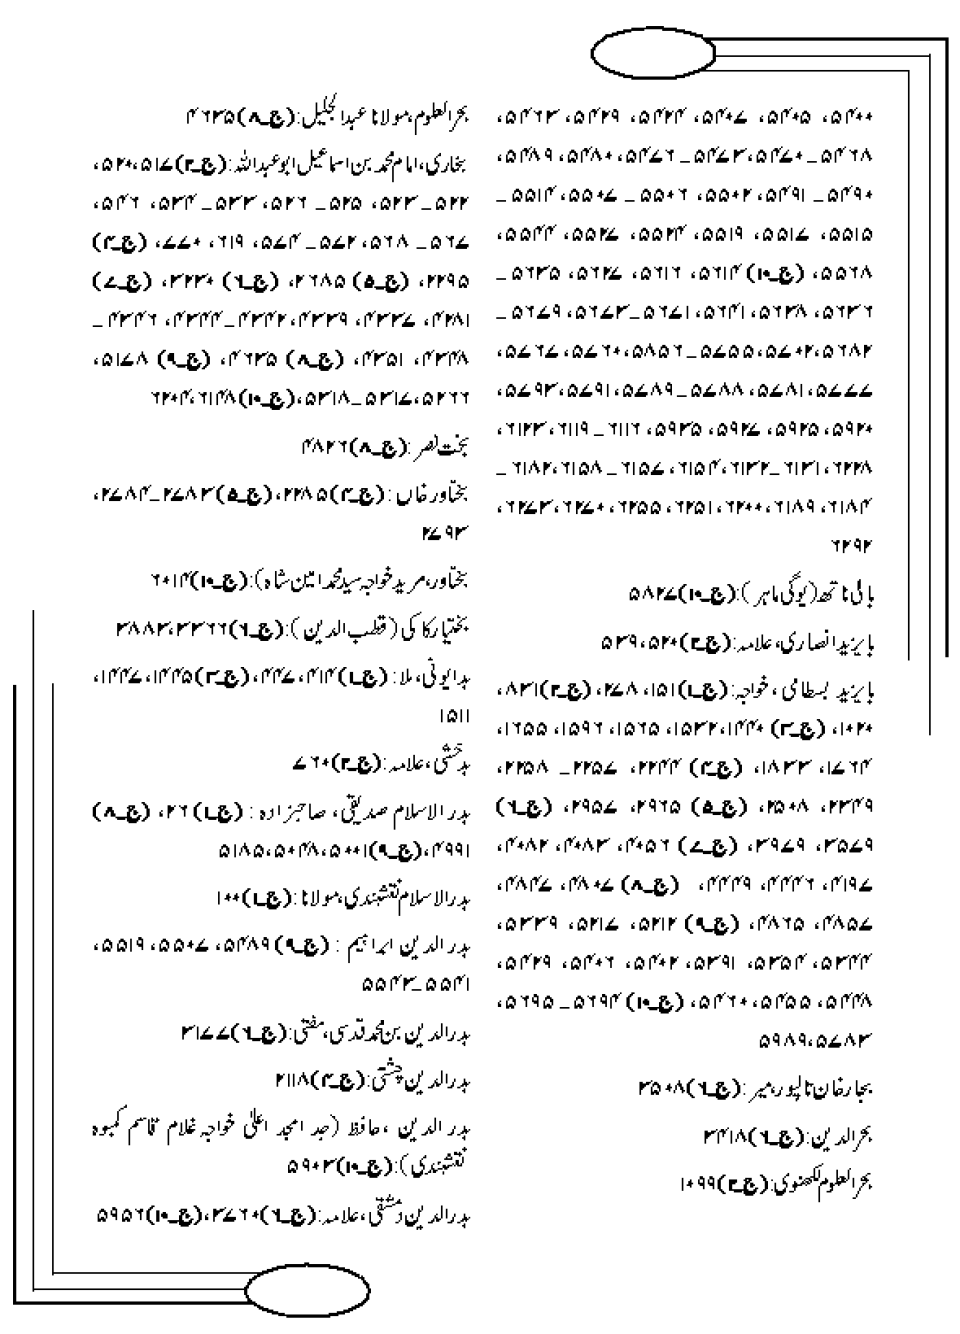 ۵۴۰۰، ۵۴۰۵، ۵۴۰۷، ۵۴۲۴، ۵۴۲۹، ۵۴۶۳،
۵۴۶۸_۵۴۷۰، ۵۴۷۳_۵۴۷۶، ۵۴۸۰، ۵۴۸۹،
۵۴۹۰_۵۴۹۱، ۵۵۰۲، ۵۵۰۶_۵۵۰۷، ۵۵۱۴_
۵۵۱۵، ۵۵۱۷، ۵۵۱۹، ۵۵۲۴، ۵۵۲۷، ۵۵۴۴،
۵۵۶۸، (ج_۱۰) ۵۶۱۴، ۵۶۱۶، ۵۶۲۷، ۵۶۳۵_
۵۶۳۶، ۵۶۳۸، ۵۶۴۱، ۵۶۷۱_۵۶۷۳، ۵۶۷۹_
۵۶۸۲، ۵۷۰۲، ۵۷۵۵_۵۸۵۶، ۵۷۶۰، ۵۷۶۷،
۵۷۷۷، ۵۷۸۱، ۵۷۸۸_۵۷۸۹، ۵۷۹۱، ۵۷۹۳،
۵۹۲۰، ۵۹۲۵، ۵۹۲۷، ۵۹۳۵، ۶۱۱۶_۶۱۱۹، ۶۱۲۳،
۶۲۲۸، ۶۱۳۱_۶۱۳۲، ۶۱۵۴، ۶۱۵۷_۶۱۵۸، ۶۱۸۲_
۶۱۸۴، ۶۱۸۹، ۶۲۰۰، ۶۲۵۱، ۶۲۵۵، ۶۲۷۰، ۶۲۷۳،
۶۲۹۲
بالی ناتھ (یوگی ماہر): (ج_۱۰) ۵۸۲۷
بایزید انصاری، علامہ: (ج_۲) ۵۲۰، ۵۳۹
بایزید بسطامی، خواجہ: (ج_۱) ۱۵۱، ۲۷۸، (ج_۲) ۸۳۱،
۱۰۲۰، (ج_۳) ۱۴۴۰، ۱۵۳۲، ۱۵۶۵، ۱۵۹۶، ۱۶۵۵،
۱۷۶۴، ۱۸۳۳، (ج_۴) ۲۲۴۴، ۲۲۵۷_۲۲۵۸،
۲۳۴۹، ۲۵۰۸، (ج_۵) ۲۹۶۵، ۲۹۵۷، (ج_۶)
۳۵۷۹، ۳۹۷۹، (ج_۷) ۴۰۵۶، ۴۰۸۳، ۴۰۸۲،
۴۱۹۷، ۴۴۴۶، ۴۴۴۹، (ج_۸) ۴۸۰۷، ۴۸۴۷،
۴۸۵۷، ۴۸۶۵، (ج_۹) ۵۲۱۲، ۵۲۱۷، ۵۳۳۹،
۵۳۴۴، ۵۳۵۴، ۵۳۹۱، ۵۴۰۲، ۵۴۰۶، ۵۴۲۹،
۵۴۴۸، ۵۴۵۵، ۵۴۶۰، (ج_۱۰) ۵۶۹۴_۵۶۹۵،
۵۷۸۳، ۵۹۸۹
بجارخان تالپور، میر: (ج_۶) ۳۵۰۸
بحرالدین: (ج_۶) ۳۴۱۸
بحرالعلوم لکھنوی: (ج_۲) ۱۰۹۹
بحرالعلوم، مولانا عبدالجلیل: (ج_۸) ۴۶۳۵
بخاری، امام محمد بن اسماعیل ابوعبداللہ: (ج_۲) ۵۱۷، ۵۲۰،
۵۲۲_۵۲۳، ۵۲۵_۵۲۶، ۵۳۳_۵۳۴، ۵۴۶،
۵۶۷_۵۶۸، ۵۷۲_۵۷۴، ۶۱۹، ۷۷۰، (ج_۴)
۲۲۹۵، (ج_۵) ۲۶۸۵، (ج_۶) ۳۲۳۰، (ج_۷)
۴۲۸۱، ۴۳۳۷، ۴۳۳۹، ۴۳۴۲_۴۳۴۴، ۴۳۴۶_
۴۳۴۸، ۴۳۵۱، (ج_۸) ۴۶۳۵، (ج_۹) ۵۱۷۸،
۵۲۶۶، ۵۳۱۷_۵۳۱۸، (ج_۱۰) ۶۱۴۸، ۶۲۰۴
بخت نصر: (ج_۸) ۴۸۲۶
بختاور خاں: (ج_۴) ۲۲۸۵، (ج_۵) ۲۷۸۳_۲۷۸۴،
۲۷۹۳
بختاور، مرید خواجہ سید محمد امین شاہ): (ج_۱۰) ۶۰۱۴
بختیار کاکی (قطب الدین): (ج_۶) ۳۳۶۶، ۳۸۸۳
بدایونی، ملا: (ج_۱) ۴۱۴، ۴۴۷، (ج_۳) ۱۴۴۵، ۱۴۴۷،
۱۵۱۱
بدخشی، علامہ: (ج_۲) ۷۶۰
بدر الاسلام صدیقی، صاحبزادہ: (ج_۱) ۲۶، (ج_۸)
۴۹۹۱، (ج_۹) ۵۰۰۱، ۵۰۴۸، ۵۱۸۵
بدرالاسلام نقشبندی، مولانا: (ج_۱) ۱۰۰
بدر الدین ابراہیم: (ج_۹) ۵۴۸۹، ۵۵۰۷، ۵۵۱۹،
۵۵۴۱_۵۵۴۳
بدرالدین بن محمد قدسی، مفتی: (ج_۶) ۳۱۷۷
بدرالدین چشتی: (ج_۴) ۲۱۱۸
بدر الدین، حافظ (جد امجد اعلیٰ خواجہ غلام قاسم کمبوہ
نقشبندی): (ج_۱۰) ۵۹۰۳
بدرالدین دمشقی، علامہ: (ج_۶) ۳۷۶۰، (ج_۱۰) ۵۹۵۶